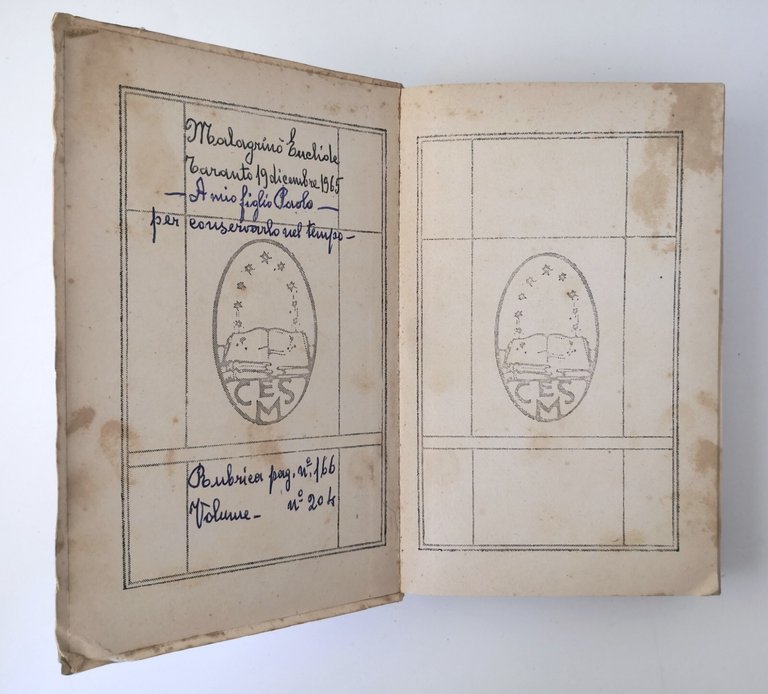 Malagrinò Euclide
Taranto 19 dicembre 1965
— A mio figlio Paolo —
per conservarlo nel tempo —
CESM
Rubrica pag. nº. 166
Volume — nº 204
CESM